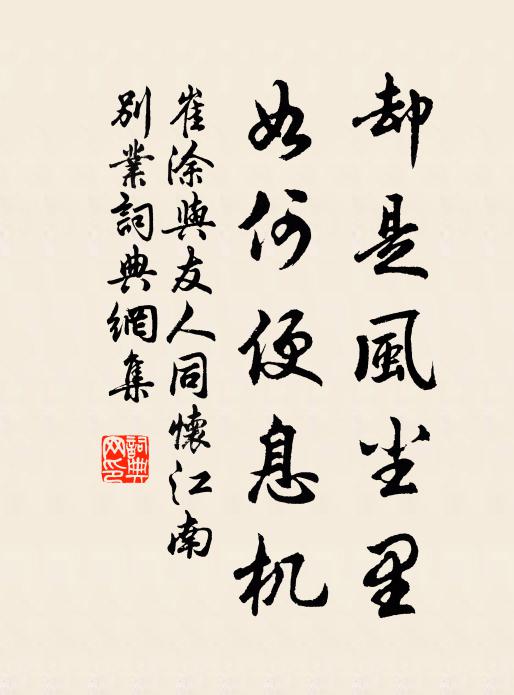 却是風尘里
如何便息机
崔涂與友人同懷江南
別業詞典網集
詞典
网印